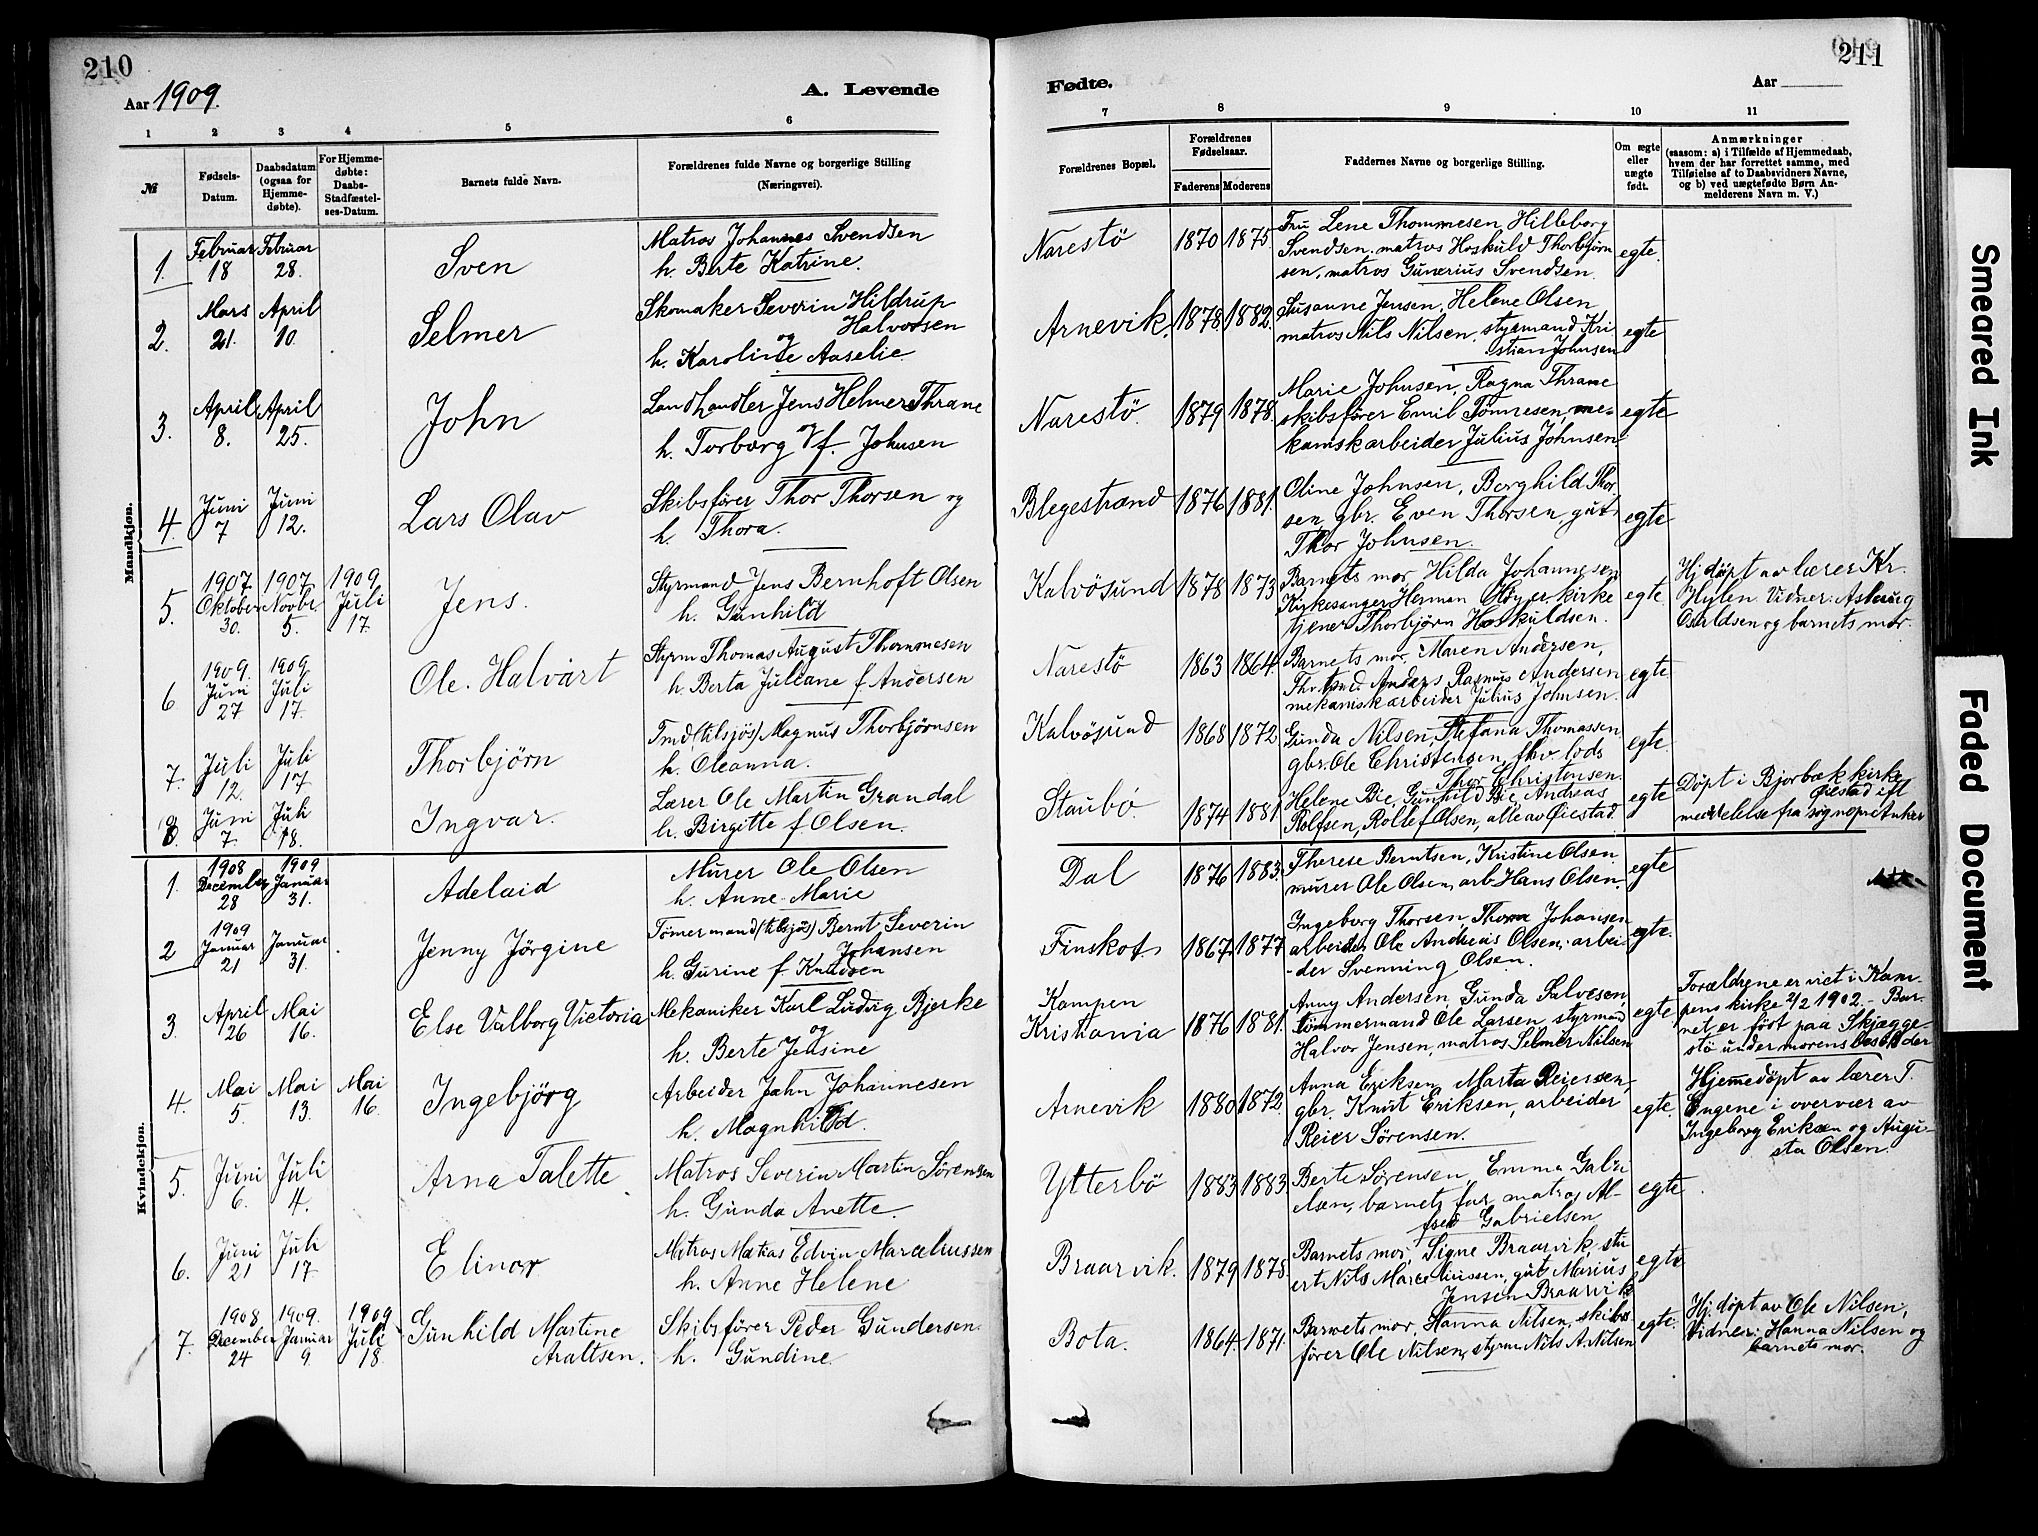 210
Aar 1909.
A. Levende
1 2 3 4 5 6
№
Fødsels-
Datum.
Daabsdatum
(ogsaa for
Hjemme-
døbte).
For Hjemme-
døbte:
Daabs-
Stadfæstel-
ses-Datum.
Barnets fulde Navn.
Forældrenes fulde Navne og borgerlige Stilling
(Næringsvei).
Mandkjøn.
1.
Februar
18
Februar
28.
Sven
Matros Johannes Svendsen
h. Berte Katrine.
2.
Mars
21.
April
10.
Selmer
Skomaker Severin Hildrup
Halvorsen
og
h. Karoline Aaselie
3.
April
8.
April
25.
John
Landhandler Jens Helmer Thrane
og
h. Torborg f. Johnsen
4.
Juni
7
Juni
12.
Lars Olav
Skibsfører Thor Thorsen og
h. Thora.
5.
1907.
Oktober
30.
1907
Novbr
5.
1909
Juli
17.
Jens.
Styrmand Jens Bernhoft Olsen
h. Gunhild
6
1909.
Juni
27
1909
Juli
17.
Ole. Halvart
Styrm Thomas August Thommesen
h. Berta Juliane f Andersen
7.
Juli
12.
Juli
17
Thorbjørn
Tmd (tilsjøs) Magnus Thorbjørnsen
h. Oleanna.
8.
Juni
7.
Juli
18.
Ingvar.
Lærer Ole Martin Grandal
h. Birgitte f Olsen.
Kvindekjøn.
1.
1908
December
28
1909
Januar
31.
Adelaid
Murer Ole Olsen
h. Anne Marie
2
1909
Januar
21
Januar
31.
Jenny Jørgine
Tømermand (tilsjøs) Bernt Severin
Johansen
h. Gurine f Knudsen
3
April
26
Mai
16.
Else Valborg Victoria
Mekaniker Karl Ludvig Bjerke
og
h. Berte Jensine
4.
Mai
5.
Mai
13.
Mai
16.
Ingebjørg
Arbeider Jahn Johannesen
h. Magnhild.
5.
Juni
6.
Juli
4.
Arna Talette.
Matros Severin Martin Sørensen
h. Gunda Anette.
6.
Juni
21
Juli
17
Elinor
Matros Matias Edvin Marceliussen
h. Anne Helene
7.
1908.
December
24
1909.
Januar
9.
1909
Juli
18.
Gunhild Martine
Araltsen.
Skibsfører Peder Gundersen.
h. Gundine.
211
Fødte.
Aar
7 8 9 10 11
Forældrenes Bopæl.
Forældrenes
Fødselsaar.
Faderens Moderens
Faddernes Navne og borgerlige Stilling.
Om ægte
eller
uægte
født.
Anmærkninger
(saasom: a) i Tilfælde af Hjemmedaab,
hvem der har forrettet samme, med
Tilføielse af to Daabsvidners Navne,
og b) ved uægtefødte Børn An-
melderens Navn m. V.)
Narestö
1870 1875
Fru Lene Thommesen, Hilleborg
Svendsen, matros Hoskuld Thorbjørn
sen, matros Gunerius Svendsen.
egte.
Arnevik.
1878 1882.
Susanne Jensen, Helene Olsen,
matros Nils Nilsen, styrmand Kri
stian Johnsen
egte
Narestö.
1879 1878.
Marie Johnsen, Ragna Thrane
skibsfører Emil Tönnesen, me-
kaniskarbeider Julius Johnsen.
egte
Blegestrand
1876 1881.
Oline Johnsen, Borghild Thor
sen, gbr. Even Thorsen, gut
Thor Johnsen.
egte
Kalvösund
1878 1873
Barnets mor, Hilda Johannesen
Kirkesanger Herman Høyer, kirke
tjener Thorbjørn Hoskuldsen.
egte.
Hj. døpt av lærer Kr.
Hylen. Vidner: Aslaug
Osuldsen og barnets mor.
Narestö
1863 1864.
Barnets mor, Maren Andersen,
Thv. tmd. Anders Rasmus Andersen
mekanisk arbeider Julius Johnsen.
egte.
Kalvösund
1868 1872
Gunda Nilsen, Stefana Thomassen
gbr. Ole Christensen, fhv. lods
Thor Christensen.
egte.
Staubö.
1874 1881
Helene Bie, Gunhild Bie, Andreas
Rolfsen, Rollef Olsen, alle av Øiestad
egte
Døpt i Bjorbæk kirke
Øiestad eft
meddelelse fra sogneprest Anker
Dal
1876 1883.
Therese Berntsen, Kristine Olsen
murer Ole Olsen, arb. Hans Olsen.
egte
Finskot.
1867. 1877
Ingeborg Thorsen, Thora Johansen
arbeider Ole Andreas Olsen, arbei-
der Svenning Olsen.
egte.
Kampen
Kristiania
1876 1881.
Anny Andersen, Gunda Salvesen,
tømmermand Ole Larsen, styrmand
Halvor Jensen, matros Selmer Nilsen
egte
Forældrene er viet i Kam-
pens kirke 2/2 1902. - Bar-
net er født paa Skjægge-
stö under morens besøk der
Arnevik
1880 1872.
Anna Eriksen, Marta Reiersen,
gbr. Knut Eriksen, arbeider
Reier Sørensen.
egte.
Hjemmedøpt av lærer T.
Engene i overvær av
Ingeborg Eriksen og Augu-
sta Olsen.
Ytterbö
1883 1883.
Berte Sørensen, Emma Gabri
elsen, barnets far, matros Al-
fred Gabrielsen
egte.
Braarvik.
1879 1878.
Barnets mor, Signe Braarvik, stu
ert Nils Marceliussen, gut Marius
Jensen Braarvik
egte
Bota.
1864. 1871.
Barnets mor, Hanna Nilsen, skibs
fører Ole Nilsen, styrm Nils A. Nilsen
egte.
Hj. døpt av Ole Nilsen,
Vidner: Hanna Nilsen og
barnets mor.
Smeared Ink
Faded Document